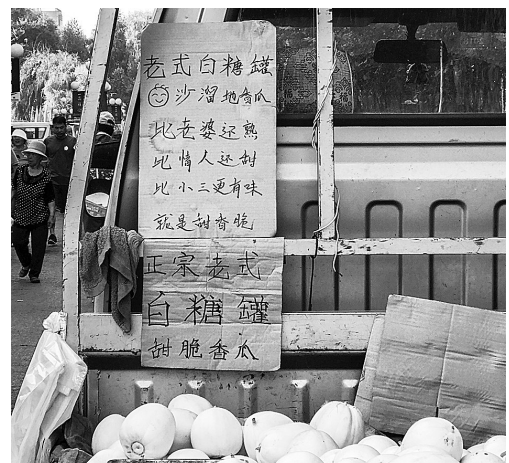 老式白糖罐
沙溜地香瓜
比老婆还熟
比情人还甜
比小三更有味
就是甜香脆
正宗老式
白糖罐
甜脆香瓜